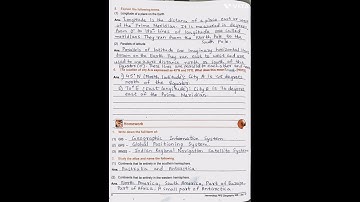 2. Explain the following terms.
(1) Longitude of a place on the Earth
Ans Longitude is the distance of a place east or west
of the Prime Meridian. It is measured in degrees
from 0° to 180° lines of longitude are called
meridians. They run from the North Pole to the
South Pole
(2) Parallels of latitude
Ans Parallels of latitude are imaginary horizontal lines
drawn on the Earth. They run east to west and are
used to measure distance north or south of the
Equator (0°). These lines are
3. The location of city A is expressed as 45°N and 70°E. What does
Ans i) 45° N (North latitude): City A is 45 degrees
north of the Equator
ii) 70° E (East longitude): City A is 70 degrees
east of the Prime Meridian.
Homework
1. Write down the full form of:
(1) GIS - Geographic Information System
(2) GPS - Global Positioning System
(3) IRNSS - Indian Regional Navigation Satellite System
2. Study the atlas and name the following.
(1) Continents that lie entirely in the southern hemisphere.
Ans Australia and Antarctica
(2) Continents that lie entirely in the western hemisphere.
Ans North America, South America, Part of Europe,
Part of Africa, A small part of Antarctica